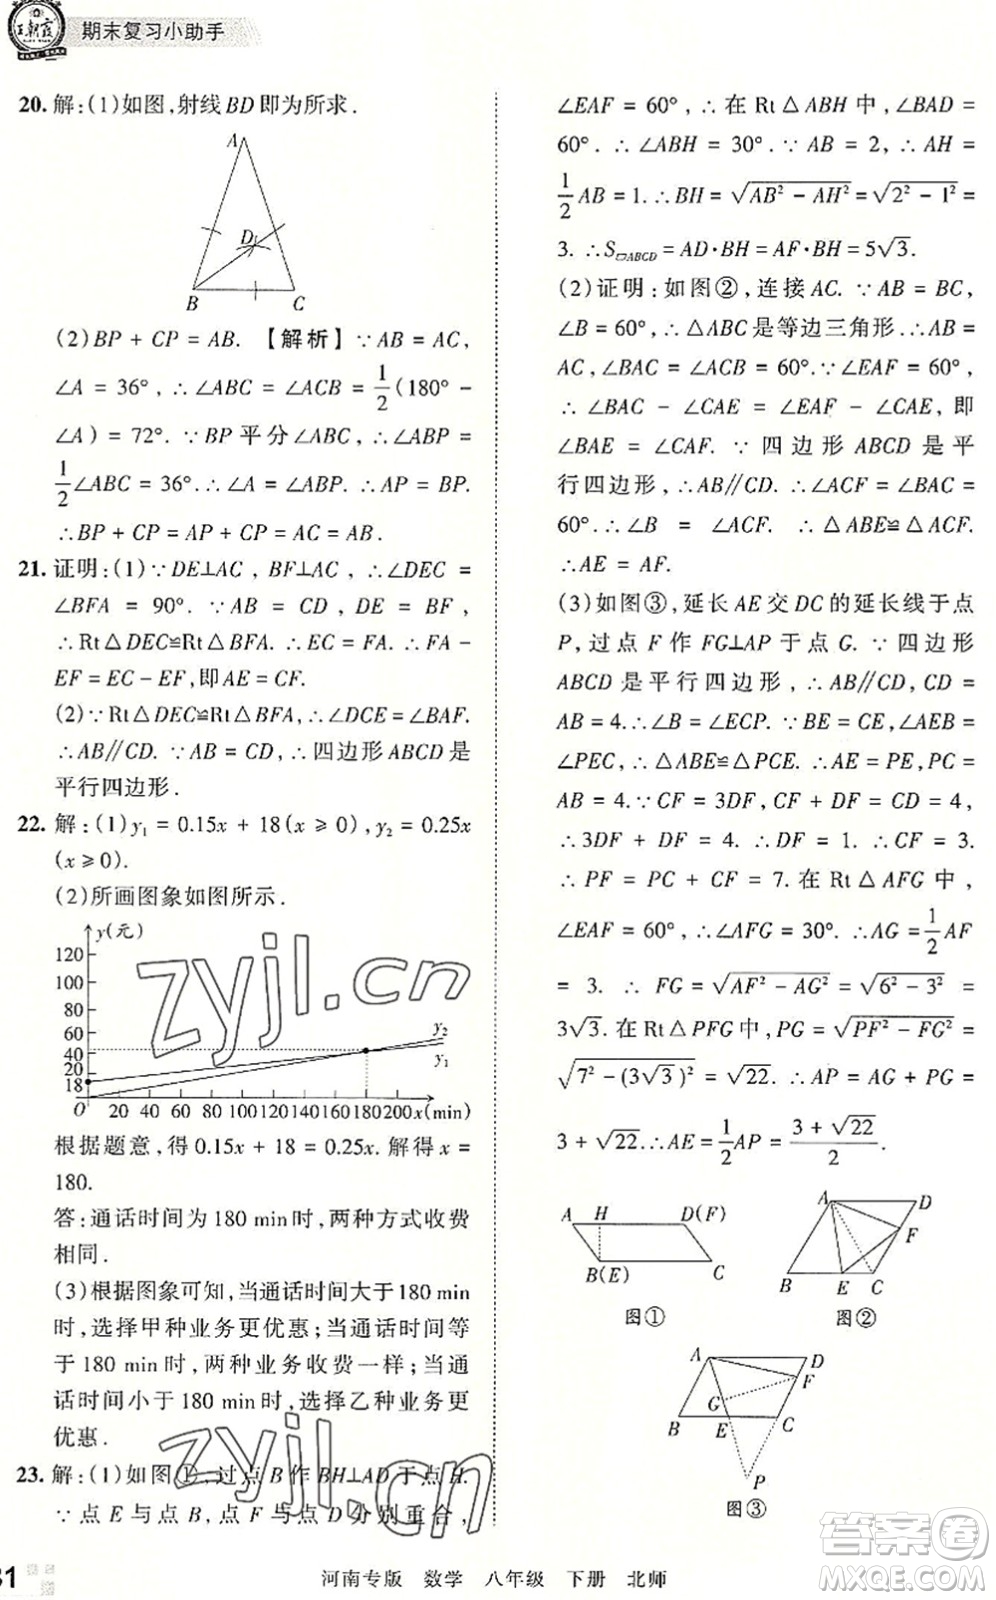 王朝霞
期末复习小助手
20. 解:(1)如图,射线BD即为所求.
A
D
B
C
(2)BP + CP = AB. 【解析】∵AB = AC,
∠A = 36°, ∴∠ABC = ∠ACB = 1/2(180° -
∠A) = 72°. ∵BP 平分∠ABC, ∴∠ABP =
1/2∠ABC = 36°. ∴∠A = ∠ABP. ∴AP = BP.
∴BP + CP = AP + CP = AC = AB.
21. 证明:(1)∵DE⊥AC, BF⊥AC, ∴∠DEC =
∠BFA = 90°. ∵AB = CD, DE = BF,
∴Rt△DEC≌Rt△BFA. ∴EC = FA. ∴FA -
EF = EC - EF,即AE = CF.
(2)∵Rt△DEC≌Rt△BFA, ∴∠DCE = ∠BAF.
∴AB∥CD. ∵AB = CD, ∴四边形ABCD是
平行四边形.
22. 解:(1)y₁ = 0.15x + 18(x ≥ 0), y₂ = 0.25x
(x ≥ 0).
(2)所画图象如图所示.
y(元)
120
100
80
60
40
20
18
y₂
y₁
O 20 40 60 80 100 120 140 160 180 200 x(min)
根据题意,得0.15x + 18 = 0.25x. 解得 x =
180.
答:通话时间为180 min时,两种方式收费
相同.
(3)根据图象可知,当通话时间大于180 min
时,选择甲种业务更优惠;当通话时间等
于180 min时,两种业务收费一样;当通
话时间小于180 min时,选择乙种业务更
优惠.
23. 解:(1)如图①,过点B作BH⊥AD于点H.
∵点E与点B,点F与点D分别重合,
∠EAF = 60°, ∴在Rt△ABH中, ∠BAD =
60°. ∴∠ABH = 30°. ∵AB = 2, ∴AH =
1/2AB = 1. ∴BH = √(AB² - AH²) = √(2² - 1²) =
3. ∴S▱ABCD = AD·BH = AF·BH = 5√3.
(2)证明:如图②,连接AC. ∵AB = BC,
∠B = 60°, ∴△ABC是等边三角形. ∴AB =
AC, ∠BAC = ∠ACB = 60°. ∵∠EAF = 60°,
∴∠BAC - ∠CAE = ∠EAF - ∠CAE,即
∠BAE = ∠CAF. ∵四边形ABCD是平
行四边形, ∴AB∥CD. ∴∠ACF = ∠BAC =
60°. ∴∠B = ∠ACF. ∴△ABE≌△ACF.
∴AE = AF.
(3)如图③,延长AE交DC的延长线于点
P,过点F作FG⊥AP于点G. ∵四边形
ABCD是平行四边形, ∴AB∥CD, CD =
AB = 4. ∴∠B = ∠ECP. ∵BE = CE, ∠AEB =
∠PEC, ∴△ABE≌△PCE. ∴AE = PE, PC =
AB = 4. ∵CF = 3DF, CF + DF = CD = 4,
∴3DF + DF = 4. ∴DF = 1. ∴CF = 3.
∴PF = PC + CF = 7. 在Rt△AFG中,
∠EAF = 60°, ∴∠AFG = 30°. ∴AG = 1/2AF
= 3. ∴FG = √(AF² - AG²) = √(6² - 3²) =
3√3. 在Rt△PFG中, PG = √(PF² - FG²) =
√(7² - (3√3)²) = √22. ∴AP = AG + PG =
3 + √22. ∴AE = 1/2AP = (3 + √22)/2.
A H D(F)
B(E) C
图①
A D
F
B E C
图②
A D
F
G
B E C
P
图③
zyjl.cn
zyjl.cn
答案圈
MXQE.COM
31
河南专版 数学 八年级 下册 北师